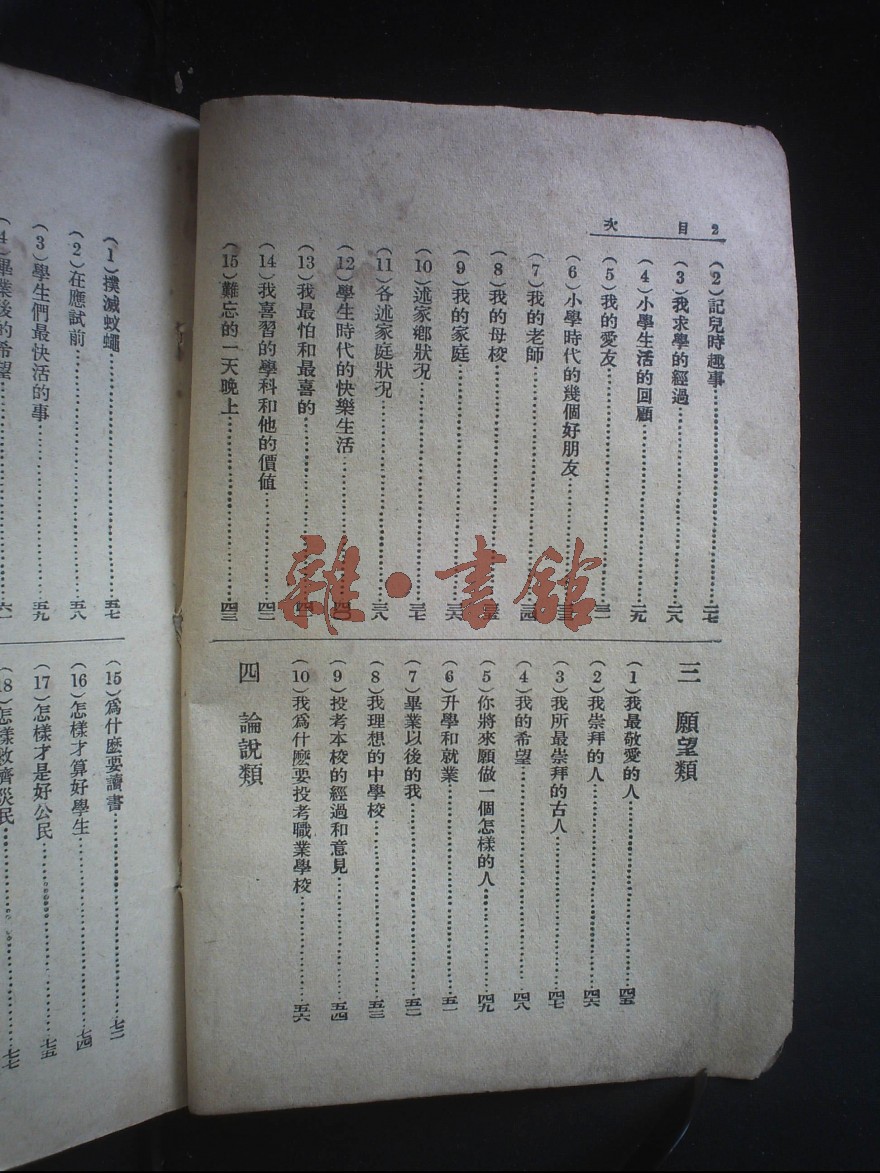 2 目 次
(2)記兒時趣事……二七
(3)我求學的經過……二八
(4)小學生活的回顧……二九
(5)我的愛友……三一
(6)小學時代的幾個好朋友……三三
(7)我的老師……三四
(8)我的母校……三五
(9)我的家庭……三六
(10)述家鄉狀況……三七
(11)各述家庭狀況……三八
(12)學生時代的快樂生活……四〇
(13)我最怕和最喜的……四一
(14)我喜習的學科和他的價値……四二
(15)難忘的一天晚上……四三
三 願望類
(1)我最敬愛的人……四五
(2)我崇拜的人……四六
(3)我所最崇拜的古人……四七
(4)我的希望……四八
(5)你將來願做一個怎樣的人……四九
(6)升學和就業……五一
(7)畢業以後的我……五二
(8)我理想的中學校……五三
(9)投考本校的經過和意見……五四
(10)我爲什麽要投考職業學校……五六
四 論說類
(1)撲滅蚊蠅……五七
(2)在應試前……五八
(3)學生們最快活的事……五九
(4)畢業後的希望……六一
(15)爲什麽要讀書……七二
(16)怎樣才算好學生……七四
(17)怎樣才是好公民……七五
(18)怎樣救濟災民……七七
雜·書館